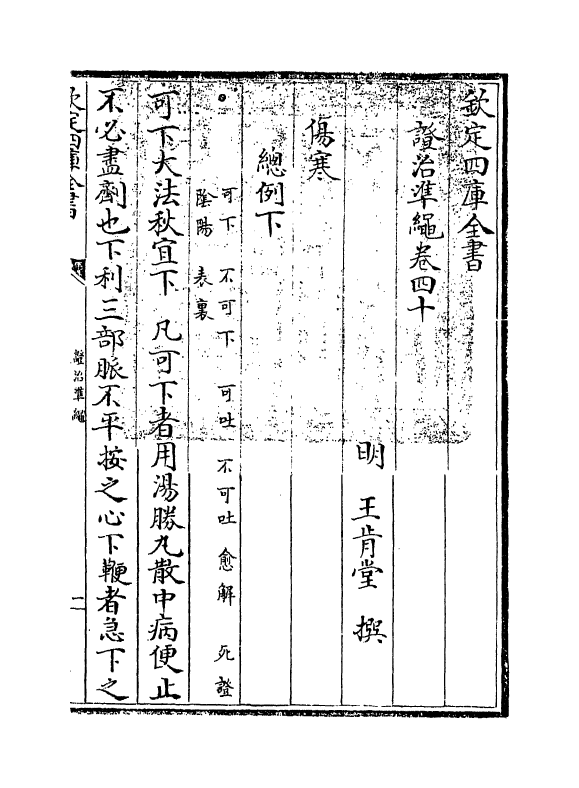 欽定四庫全書
證治準繩卷四十
明 王肯堂 撰
傷寒
總例下
可下 不可下 可吐 不可吐 愈解 死證
陰陽 表裏
可下大法秋宜下 凡可下者用湯勝丸散中病便止
不必盡劑也下利三部脈不平按之心下鞕者急下之
欽定四庫全書
證治準繩